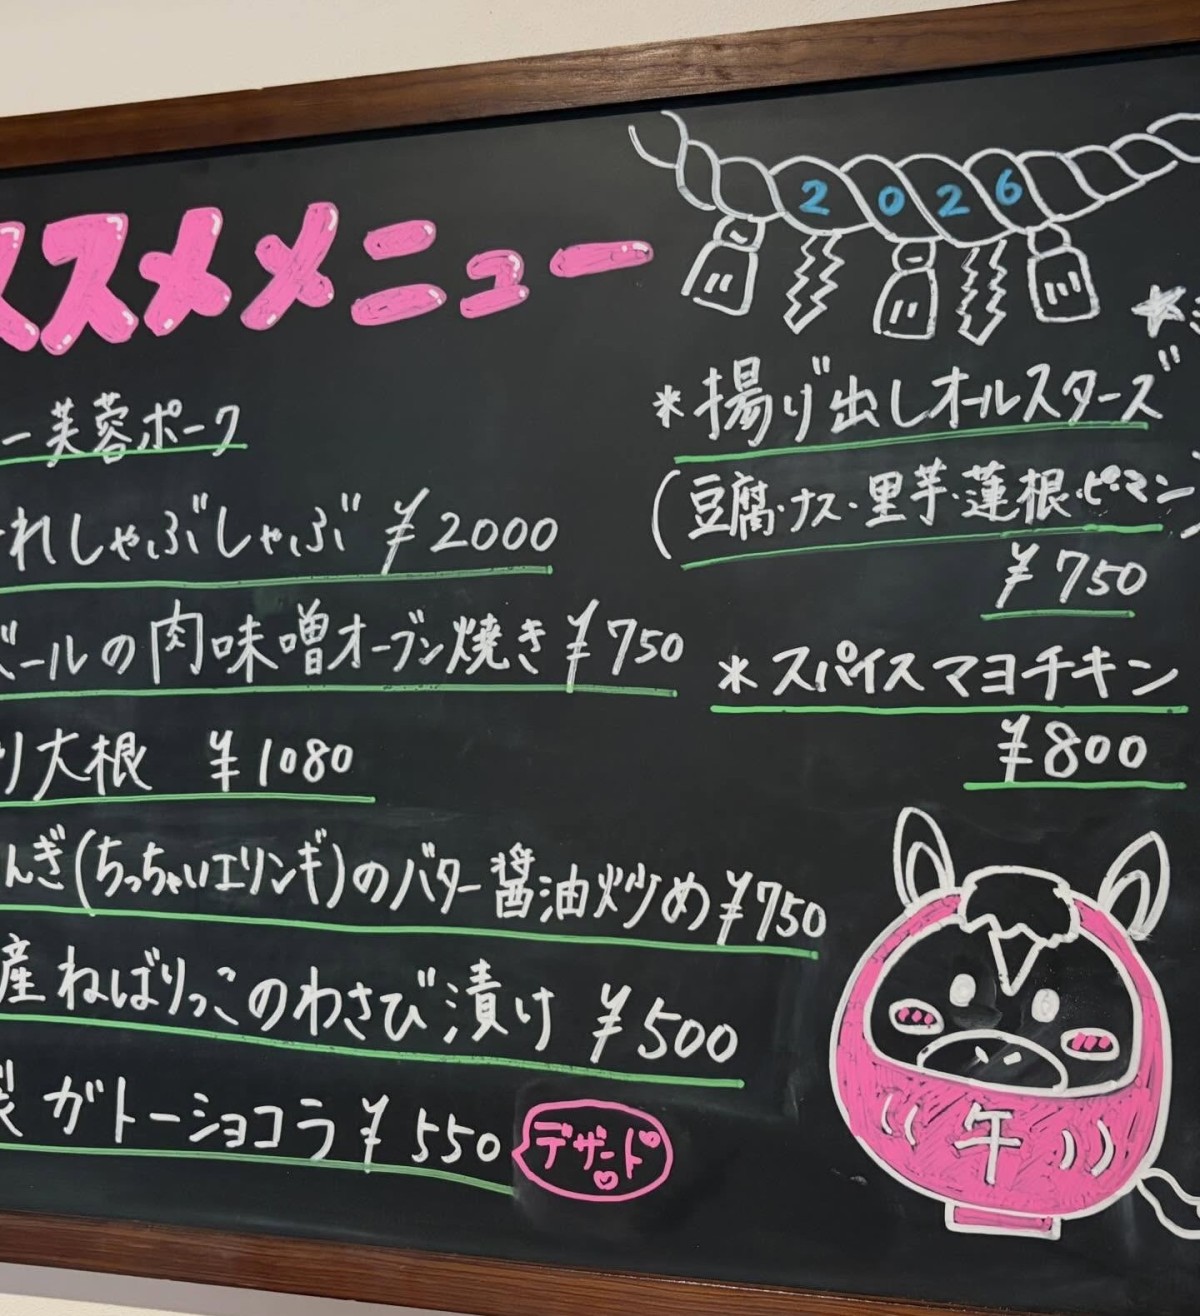 ススメメニュー
ー芙蓉ポーク
れしゃぶしゃぶ ¥2000
ールの肉味噌オーブン焼き ¥750
り大根 ¥1080
んぎ(ちっちゃいエリンギ)のバター醤油炒め ¥750
産ねばりっこのわさび漬け ¥500
製 ガトーショコラ ¥550
デザート
2026
*揚げ出しオールスターズ
(豆腐・ナス・里芋・蓮根・ピーマン)
¥750
*スパイスマヨチキン
¥800
午